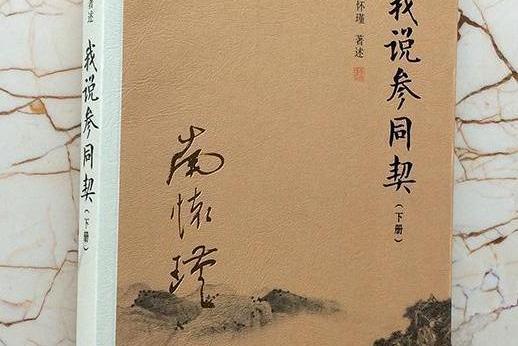 著述
我说参同契
（下册）
怀瑾 著述
我说参同契
（下册）
南怀瑾